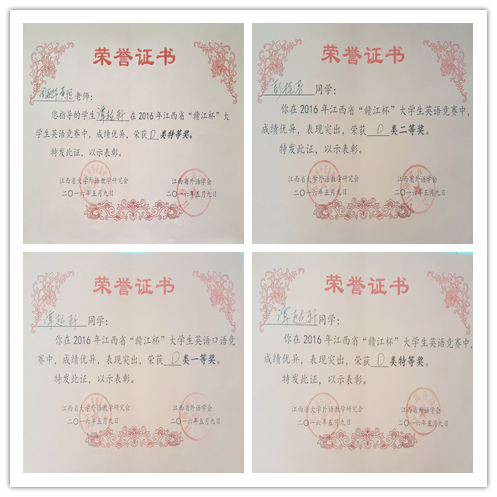 荣誉证书
老师:
您指导的学生 在2016年江西省“赣江杯”大
学生英语竞赛中,成绩优异,荣获 D 类特等奖。
特发此证,以示表彰。
江西省大学外语教学研究会 江西省外语学会
二〇一六年五月九日 二〇一六年五月九日
荣誉证书
同学:
你在2016年江西省“赣江杯”大学生英语竞赛中,
成绩优异,表现突出,荣获 D 类二等奖。
特发此证,以示表彰。
江西省大学外语教学研究会 江西省外语学会
二〇一六年五月九日 二〇一六年五月九日
荣誉证书
同学:
你在2016年江西省“赣江杯”大学生英语口语竞
赛中,成绩优异,表现突出,荣获 D 类一等奖。
特发此证,以示表彰。
江西省大学外语教学研究会 江西省外语学会
二〇一六年五月九日 二〇一六年五月九日
荣誉证书
同学:
你在2016年江西省“赣江杯”大学生英语竞赛中,
成绩优异,表现突出,荣获 D 类特等奖。
特发此证,以示表彰。
江西省大学外语教学研究会 江西省外语学会
二〇一六年五月九日 二〇一六年五月九日